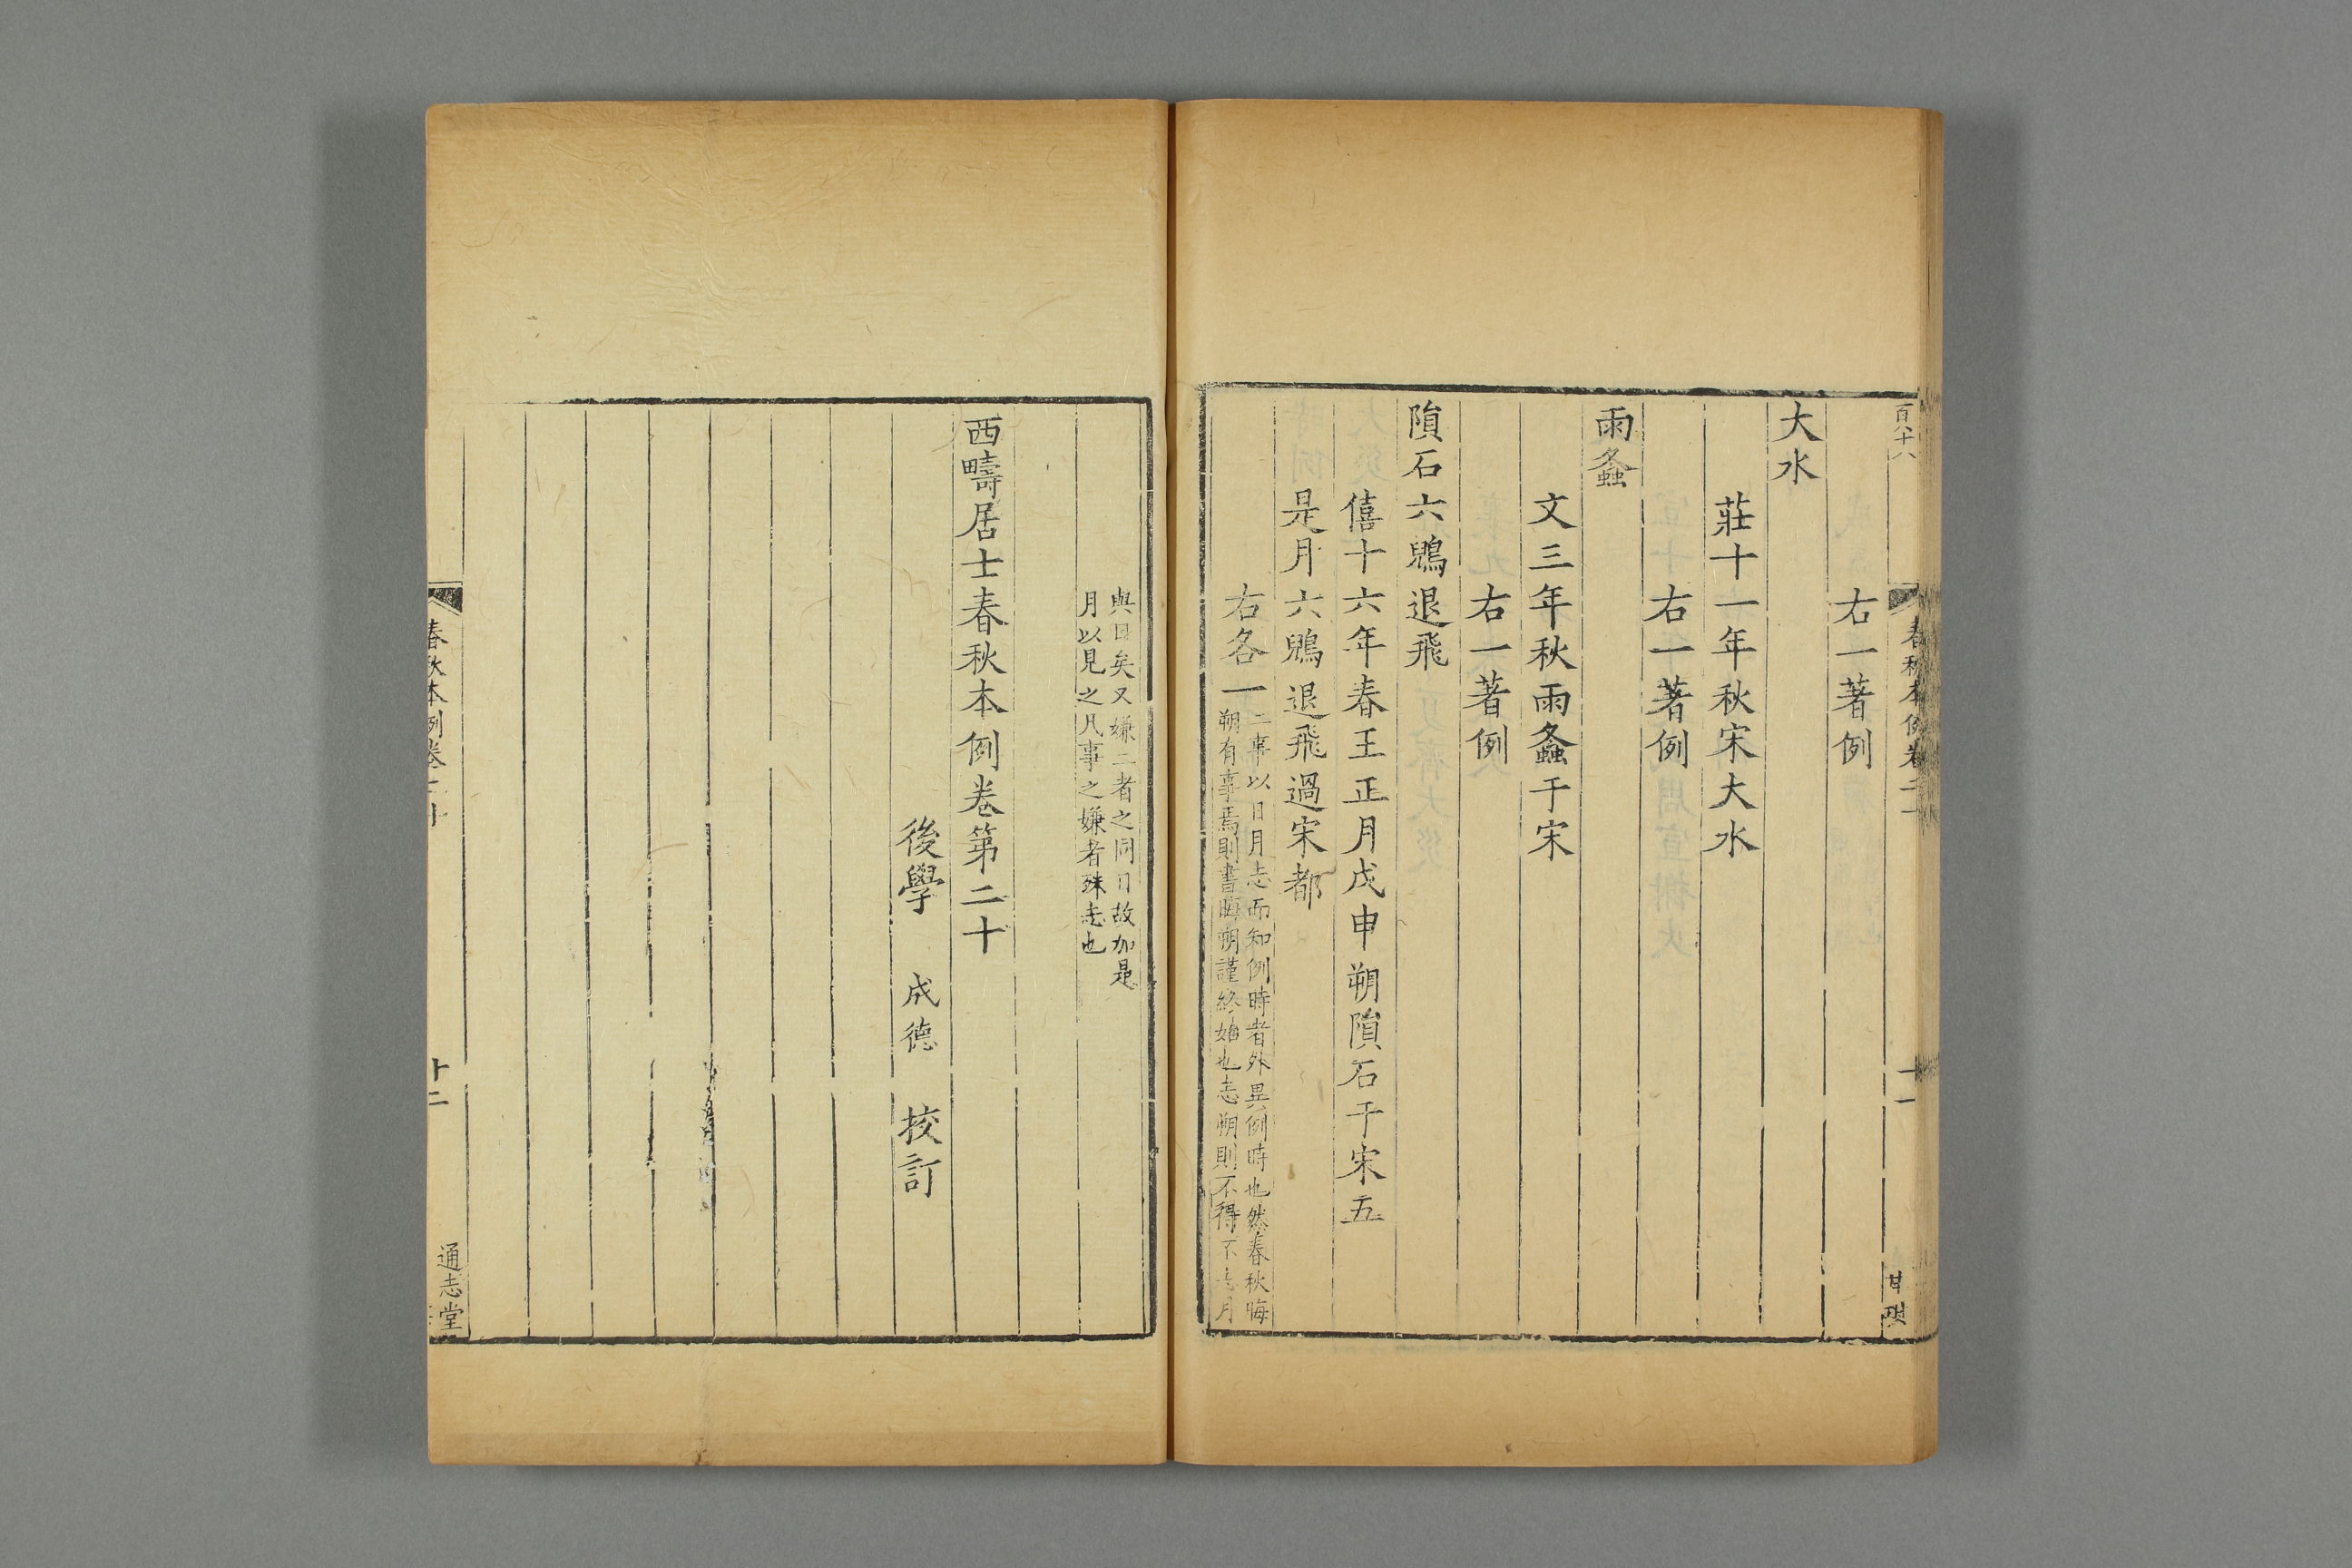 百八十六
春秋本例卷二十
十一
右一著例
大水
莊十一年秋宋大水
右一著例
雨螽
文三年秋雨螽于宋
右一著例
隕石六鶂退飛
僖十六年春王正月戊申朔隕石于宋五
是月六鶂退飛過宋都
右各一
二事以日月志而知例時者外異例時也然春秋晦
朔有事焉則書晦朔謹終始也志朔則不得不志月
與日矣又嫌二者之同日故加是
月以見之凡事之嫌者殊志也
西疇居士春秋本例卷第二十
後學 成德 挍訂
春秋本例卷二十
十二
通志堂